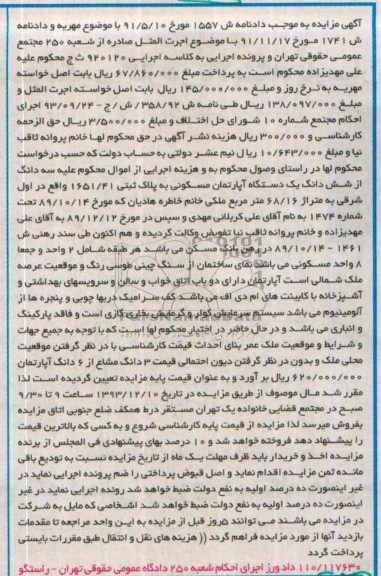 آگهی مزایده به موجب دادنامه ش ۱۵۵۷ مورخ ۹۱/۵/۱۰ با موضوع مهریه و دادنامه
ش ۱۷۴۱ مورخ ۹۱/۱۱/۱۷ با موضوع اجرت المثل صادره از شعبه ۲۵۰ مجتمع
عمومی حقوقی تهران و پرونده اجرایی به کلاسه اجرایی ۹۲۰۱۲۰ ث ج محکوم علیه
علی مهدیزاده محکوم است به پرداخت مبلغ ۶۷/۸۶۰/۰۰۰ ریال بابت اصل خواسته
مهریه به نرخ روز و مبلغ ۱۴۵/۰۰۰/۰۰۰ ریال بابت اصل خواسته اجرت المثل و
مبلغ ۱۳۸/۰۹۷/۰۰۰ ریال طی نامه ش ۳۵۸/۹۲/ش/ج - ۹۳/۰۹/۲۴ اجرای
احکام مجتمع شماره ۱۰ شورای حل اختلاف و مبلغ ۳/۵۰۰/۰۰۰ ریال حق الزحمه
کارشناسی و ۳۰۰/۰۰۰ ریال هزینه نشر آگهی در حق محکوم لها خانم پروانه ثاقب
نیا و مبلغ ۱۰/۶۴۳/۰۰۰ ریال نیم عشر دولتی به حساب دولت که حسب درخواست
محکوم لها در راستای وصول محکوم به و هزینه اجرایی از اموال محکوم علیه سه دانگ
از شش دانگ یک دستگاه آپارتمان مسکونی به پلاک ثبتی ۱۶۵۱/۴۱ واقع در اول
شرقی به متراژ ۶۸/۱۶ متر مربع ملکی خانم خاطره هادیان که مورخ ۸۹/۱۰/۱۴ تحت
شماره ۱۴۷۴ به نام آقای علی کربلائی مهدی و سپس در مورخ ۸۹/۱۲/۱۲ به آقای علی
مهدیزاده و خانم پروانه ثاقب نیا تفویض وکالت گردیده و هم اکنون طی سند رهنی ش
۱۴۶۱ - ۸۹/۱۰/۱۴ در رهن بانک مسکن می باشد هر طبقه شامل ۲ واحد و جمعا
۸ واحد مسکونی می باشد نمای ساختمان از سنگ چینی طوسی رنگ و موقعیت عرصه
ملک شمالی است آپارتمان دارای دو باب اتاق خواب و سالن و سرویسهای بهداشتی و
آشپزخانه با کابینت های ام دی اف می باشد کف سرامیک دربها چوبی و پنجره ها از
آلومینیوم می باشد سیستم سرمایش کولر و گرمایش بخاری گازی است و فاقد پارکینگ
و انباری می باشد و در حال حاضر در اختیار محکوم لها است که با توجه به جمیع جهات
و شرایط و موقعیت ملک عمر بنای احداث قیمت کارشناسی با در نظر گرفتن موقعیت
محلی ملک و بدون در نظر گرفتن دیون احتمالی قیمت ۳ دانگ مشاع از ۶ دانگ آپارتمان
۶۲۰/۰۰۰/۰۰۰ ریال بر آورد و به عنوان قیمت پایه مزایده تعیین گردیده است لذا
مقرر شد مال موصوف از طریق مزایده در تاریخ ۱۳۹۳/۱۲/۱۰ ساعت ۹ تا ۹/۳۰
صبح در مجتمع قضایی خانواده یک تهران مستقر در ط همکف ضلع جنوبی اتاق مزایده
بفروش میرسد لذا مزایده از قیمت پایه کارشناسی شروع و به کسی که بالاترین قیمت
را پیشنهاد دهد فروخته خواهد شد و ۱۰ درصد بهای پیشنهادی فی المجلس از برنده
مزایده اخذ و خریدار باید ظرف مهلت یک ماه از تاریخ مزایده نسبت به تودیع باقی
مانده ثمن مزایده اقدام نماید و اصل قبوض پرداختی را ضم پرونده اجرایی نماید در
غیر اینصورت ده درصد اولیه به نفع دولت ضبط خواهد شد رونده اجرایی نماید در غیر
اینصورت ده درصد اولیه به نفع دولت ضبط خواهد شد اشخاصی که مایل به شرکت
در مزایده می باشند می توانند ۵روز قبل از مزایده به این واحد مراجعه تا مقدمات
بازدید آنها از مورد مزایده فراهم گردد (( هزینه های نقل و انتقال طبق مقررات بایستی
پرداخت گردد
۱۱۰/۱۱۷۶۳۰ داد ورز اجرای احکام شعبه ۲۵۰ دادگاه عمومی حقوقی تهران - راستگو